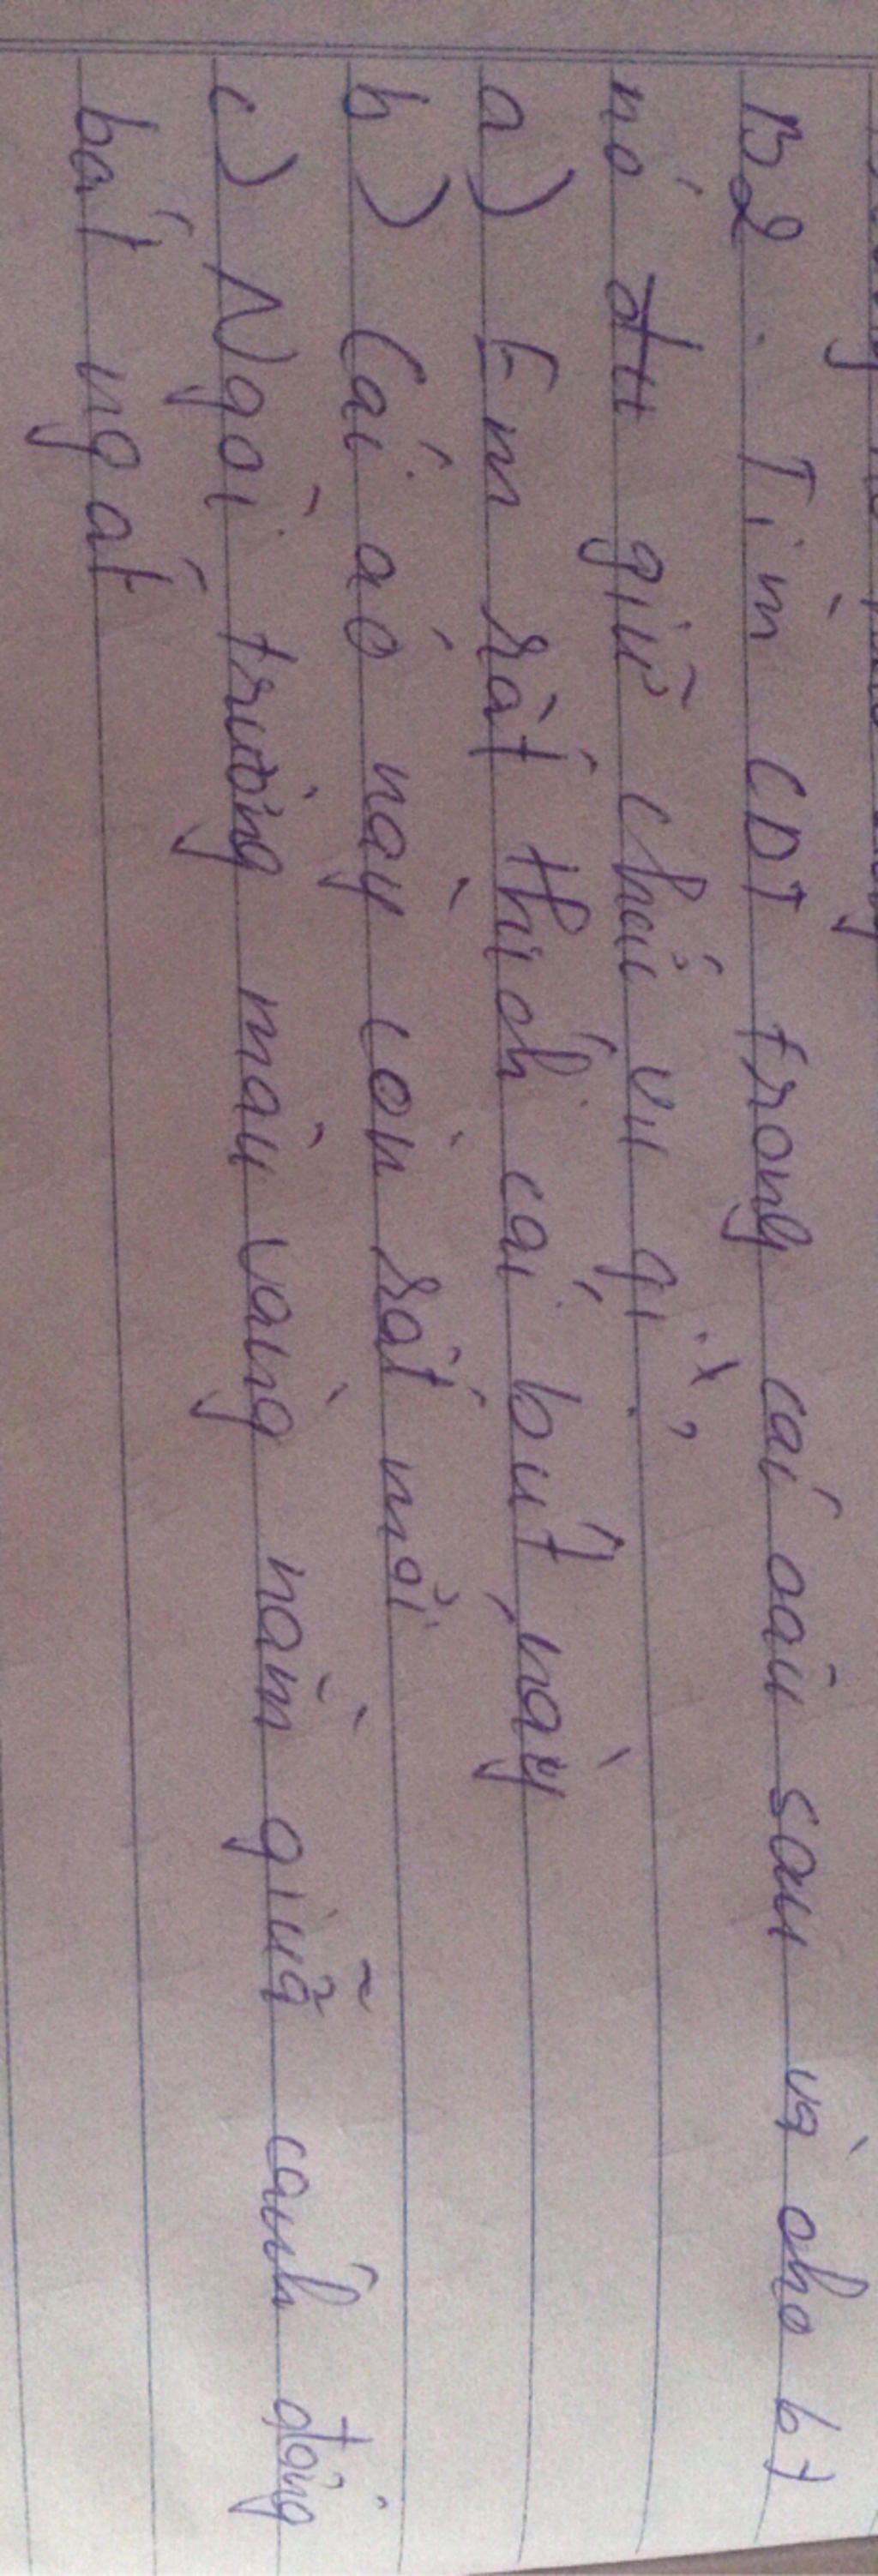 B2. Tìm CDT trong các câu sau và cho bt
nó đu giữ chức vụ gì.
a) Em rất thích cái bút này
b) Cái áo này còn rất mới
c) Ngôi trường màu vàng nằm giữa cánh đồng
bát ngát